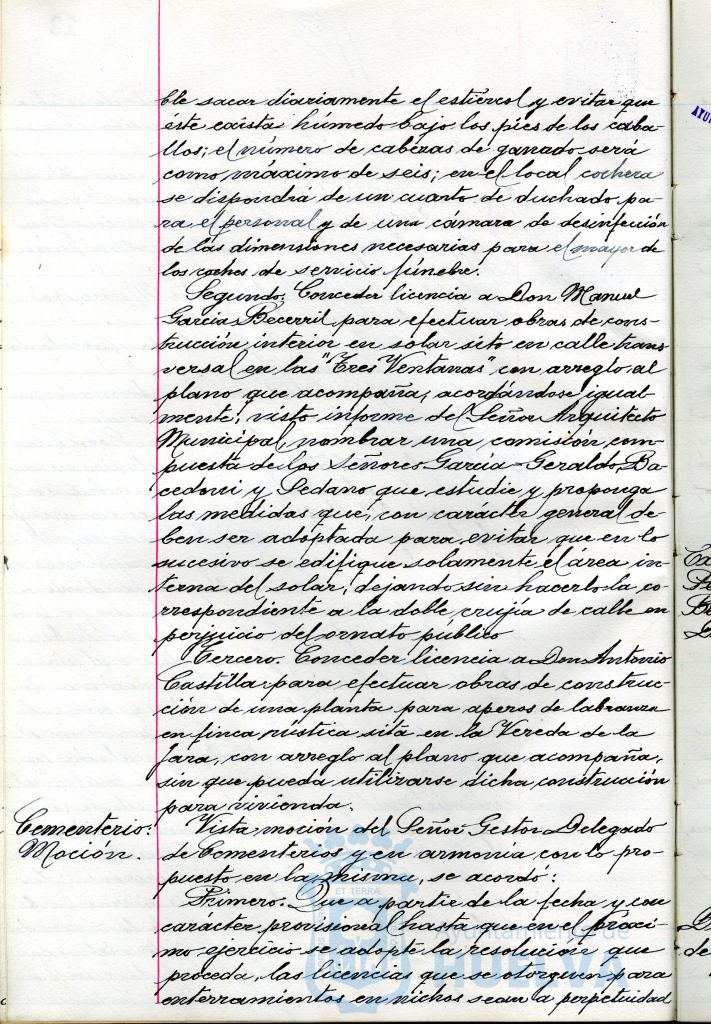 ble sacar diariamente el estiércol y evitar que
éste exista húmedo bajo los pies de los caba-
llos; el número de cabezas de ganado será
como máximo de seis; en el local cochera
se dispondrá de un cuarto de duchado pa-
ra el personal y de una cámara de desinfección
de las dimensiones necesarias para el mayor de
los coches de servicio fúnebre.
Segundo. Conceder licencia a Don Manuel
García Becerril para efectuar obras de cons-
trucción interior en solar sito en calle trans
versal en las "Tres Ventanas" con arreglo al
plano que acompaña; acordándose igual-
mente, visto informe del Señor Arquitecto
Municipal, nombrar una comisión com-
puesta de los Señores García-Geraldo, Ba-
cedoni y Sedano que estudie y proponga
las medidas que, con carácter general de-
ben ser adoptada para evitar que en lo
sucesivo se edifique solamente el área in-
terna del solar, dejando sin hacerlo la co-
rrespondiente a la doble crujía de calle en
perjuicio del ornato público
Tercero. Conceder licencia a Don Antonio
Castilla para efectuar obras de construc-
ción de una planta para aperos de labranza
en finca rústica sita en la Vereda de la
Jara, con arreglo al plano que acompaña,
sin que pueda utilizarse dicha construcción
para vivienda.
Cementerio.
Moción.
Vista moción del Señor Gestor Delegado
de Cementerios y en armonía con lo pro-
puesto en la misma, se acordó:
Primero. Que a partir de la fecha y con
carácter provisional hasta que en el próxi-
mo ejercicio se adopte la resolución que
proceda, las licencias que se otorguen para
enterramientos en nichos sean a perpetuidad
ET TERRA
Ayuntamiento de
HUELVA